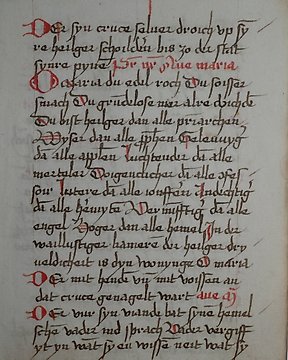 Der syn cruce seluer droich vp sy
re heilger scholden bis zo der stat
synre pyne Pr nr Aue maria
O maria du edel roch Du soisser
smach Du grundelose mer alre doichdē
Du bist heilger dan alle priarchen
Wyser dan alle ꝓphē Geleuuyg
dā alle appłen Luchtender dā alle
merteler
sour Lutere dā alle ionffeñ Indechtig
dā alle hemytē Vernufftig dā alle
engel Hoger dan alle hemel In der
wailluftiger kamere der heilger dry
ueldicheit is dyn wonynge O maria
Der mit hende vñ mit voissen an
dat cruce genagelt wart aue
Der vur syn viandē bat synē hemel
sche vader ind sprach Vader vergiff
yt yn wat sy en wisse neit wat sy